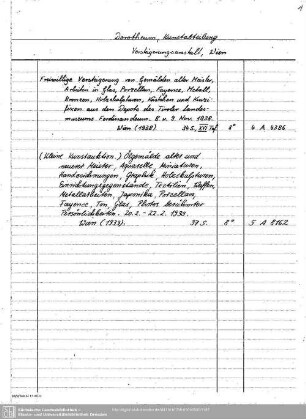 1
Dorotheum, Kunstabteilung
Versteigerungsanstalt, Wien
Freiwillige Versteigerung von Gemälden alter Meister,
Arbeiten in Glas, Porzellan, Fayence, Metall,
Bronzen, Holzskulpturen, Kästchen und Kurzi-
fixen aus den Depots des Tiroler Landes-
museums Ferdinandeum. 8. u. 9. Nov. 1938.
Wien (1938) 34 S. XVI Taf. 8° 4 A 8386
(Kleine Kunstauktion.) Ölgemälde alter und
neuerer Meister, Aquarelle, Miniaturen,
Handzeichnungen, Graphik, Holzskulpturen,
Einrichtungsgegenstände, Textilien, Waffen,
Metallarbeiten, Japonika, Porzellan,
Fayence, Ton, Glas, Photos berühmter
Persönlichkeiten. 20.2. - 22.2. 1939.
Wien (1939). 37 S. 8° 5 A 8162